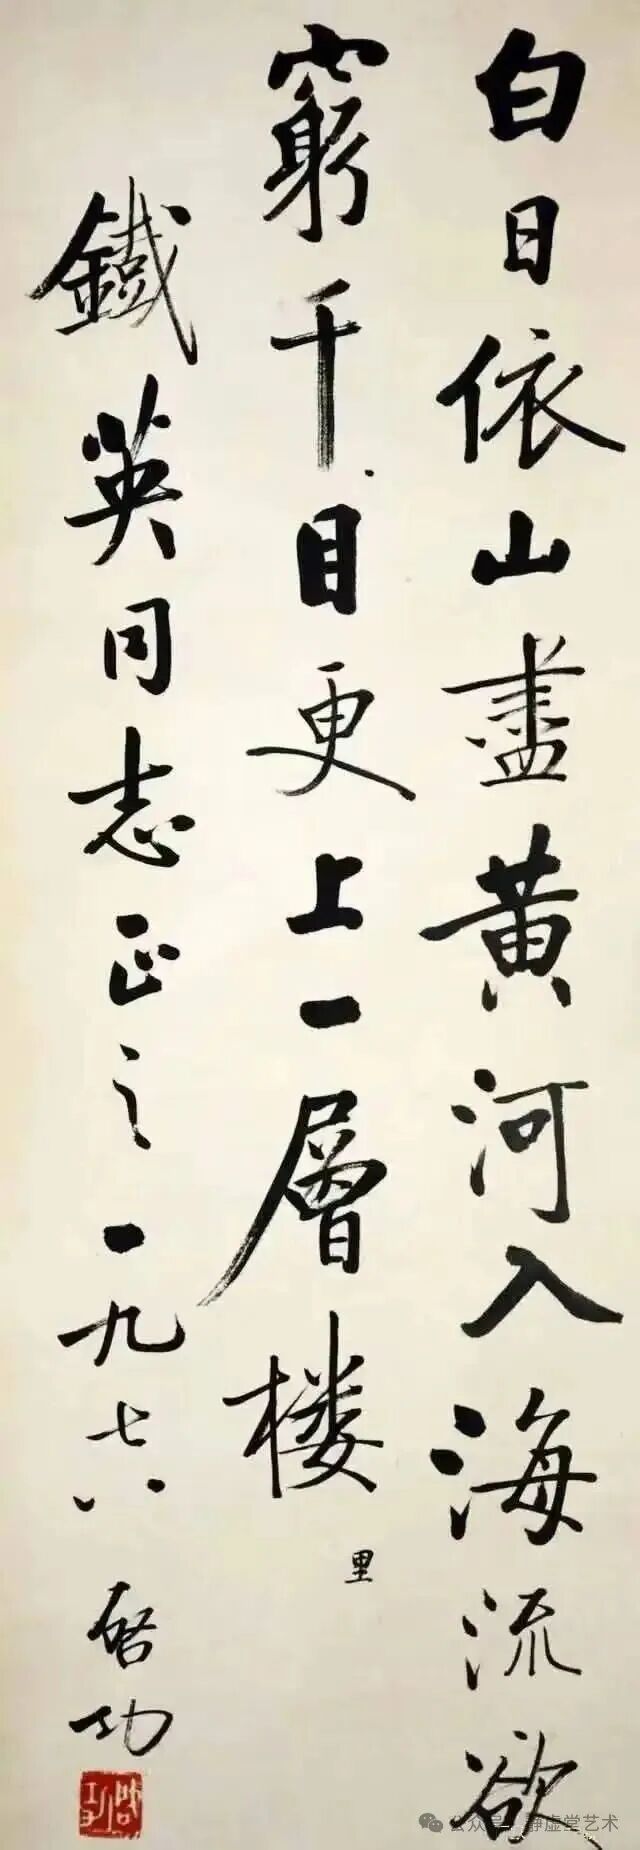 白日依山盡黄河入海流欲
窮千目更上一層楼
里
鐵英同志正之一九七八啓功
启功
公众号·静虚堂艺术